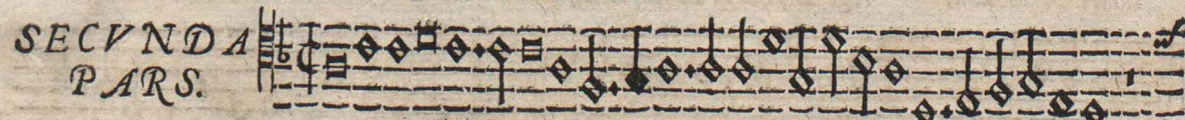 SECVNDA
PARS.